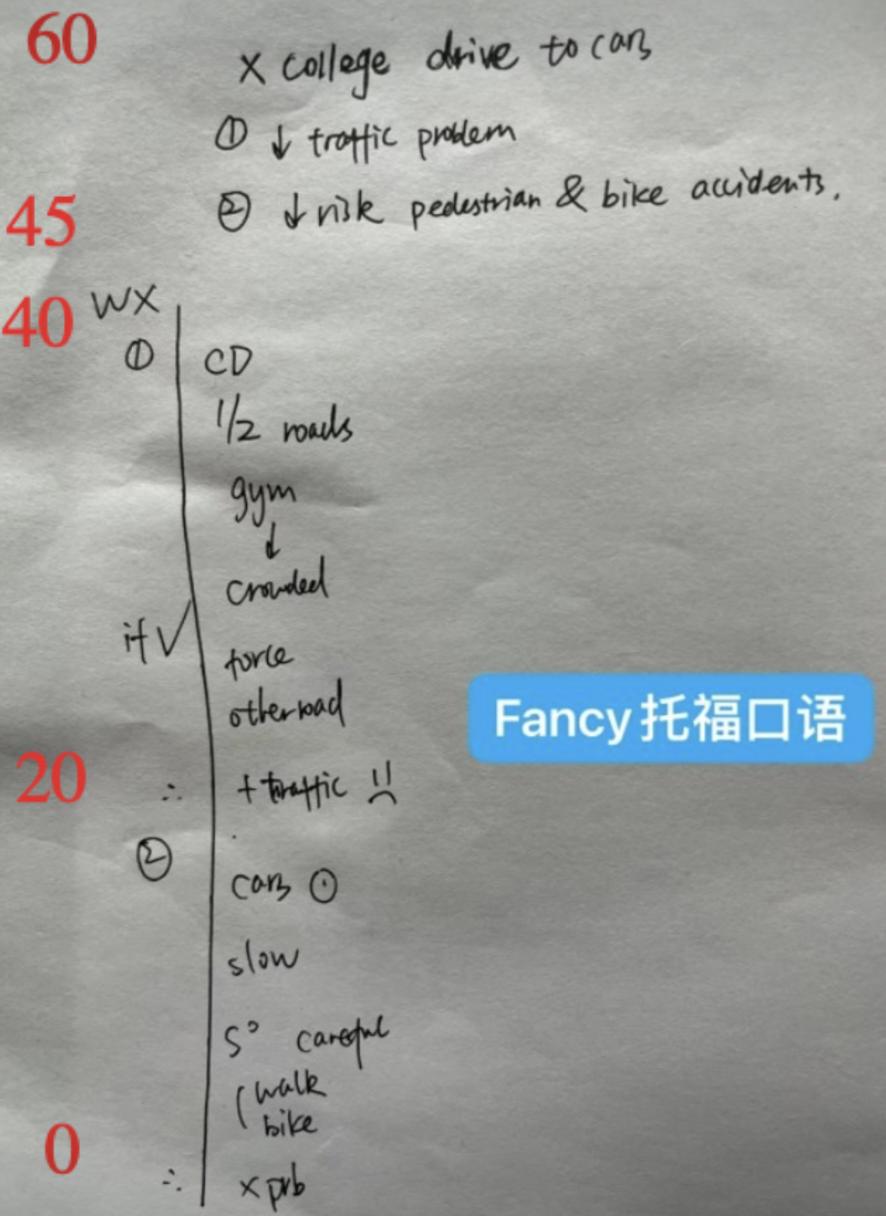 60
X college drive to cars
① ↓ traffic problem
45
② ↓ risk pedestrian & bike accidents.
40 WX
① CD
1/2 roads
gym
↓
crowded
if √
force
other road
20
∴ + traffic
② cars ⊙
slow
S° careful
( walk
bike
0
∴ x prb
Fancy托福口语